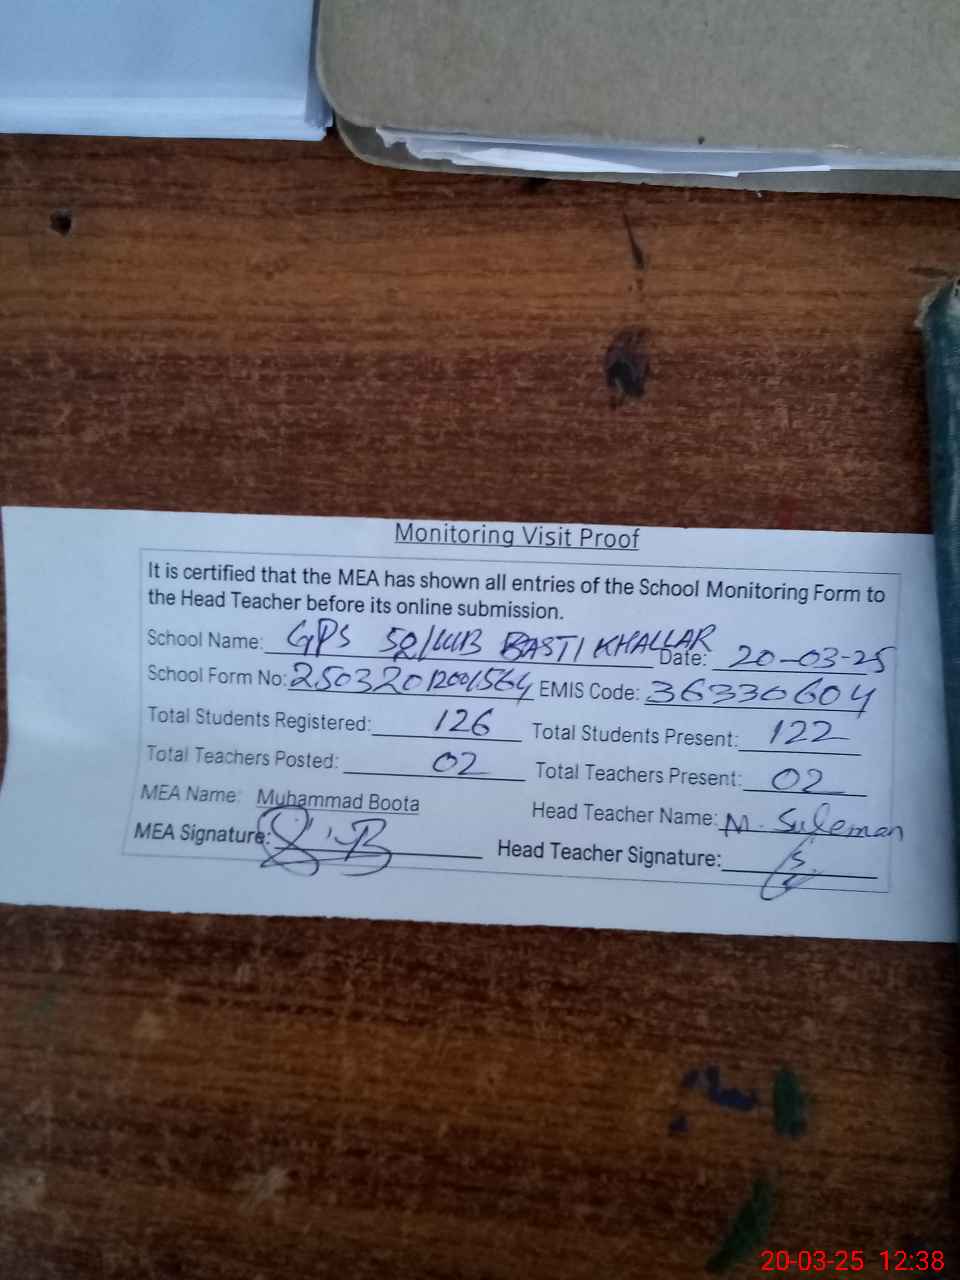 Monitoring Visit Proof
It is certified that the MEA has shown all entries of the School Monitoring Form to
the Head Teacher before its online submission.
School Name: GPS 52/WB BASTI KHALLAR Date: 20-03-25
School Form No: 25032012001564 EMIS Code: 36330604
Total Students Registered: 126 Total Students Present: 122
Total Teachers Posted: 02 Total Teachers Present: 02
MEA Name: Muhammad Boota Head Teacher Name: M. Suleman
MEA Signature: Head Teacher Signature:
20-03-25 12:38